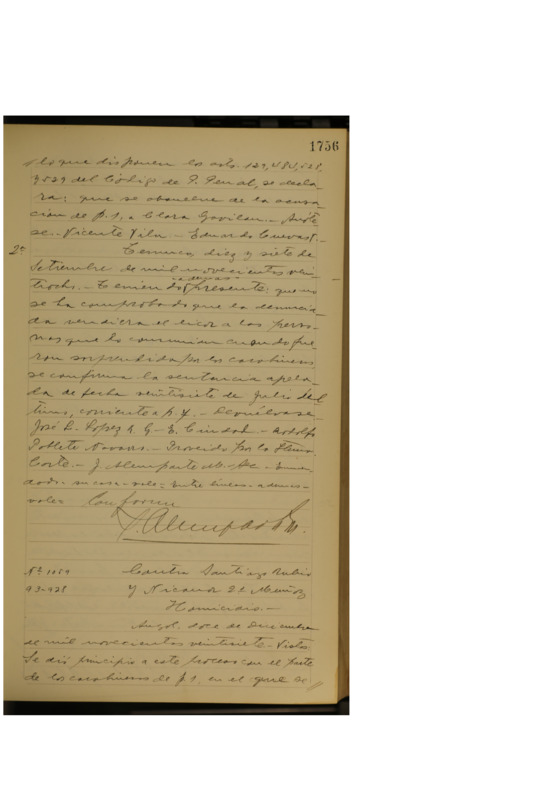 1756
lo que disponen los arts. 129, 484, 528,
y 529 del Código de P. Penal, se decla-
ra: que se absuelve de la acusa-
ción de f. 1, a Clara Gavilan.- Anóte-
se.- Vicente Vilu - Eduardo Cuevas V.-
2ª Temuco, diez y siete de
Setiembre de mil novecientos vein-
además
tiocho.- Teniendo presente: que no
se ha comprobado que la denuncia-
da vendiera el licor a las perso-
nas que lo consumian cuando fue-
ron sorprendidas por los carabineros
se confirma la sentencia apela-
da de fecha veintisiete de Julio últi-
timo, corriente a f. 4.- Devuélvase.
José L. Lopez A. G.- E. Ciudad.- Adolfo
Poblete Navarro.- Proveido por la Iltma.
Corte.- J. Alemparte M.- Sec.- Enmen-
dado- vale= entre lineas- ademas-
vale= Conforme
J. Alemparte M.
Nº 1054 Contra Santiago Rubio
93-928 y Nicanor 2º Muñoz
Homicidio.-
Angol, doce de Diciembre
de mil novecientos veintisiete.- Vistos
Se dió principio a este proceso con el parte
de los carabineros de f. 1, en el que se